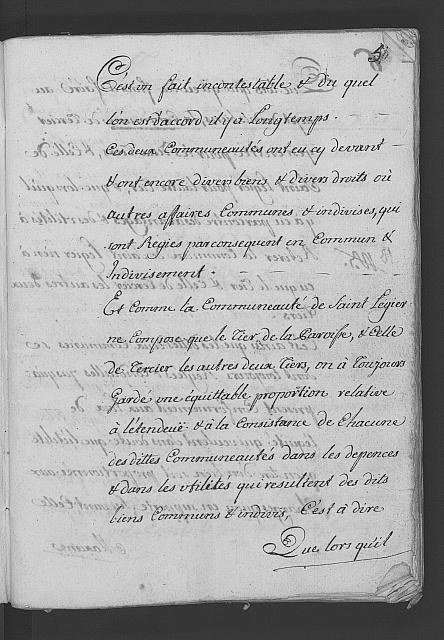 5
C'est un fait incontestable & du quel
l'on est d'accord il y à Longtemps.
Ces deux Communeautés ont eu cy devant
& ont encore divers biens & divers droits où
autres affaires Communes & indivises, qui
sont Regies par consequent en Commun &
Indivisement.
Et comme la Communeauté de Saint Legier
ne Compose que le Tier de la Paroisse, & Celle
de Tercier les autres deux Tiers, on à Toujours
Gardé une équittable proportion relative
à l'étendeuë & à la Consistance de Chacune
des dittes Communeautés dans les depences
& dans les utilités qui resultent des dits
biens Communs & indivis, C'est à dire
Que lors qu'il